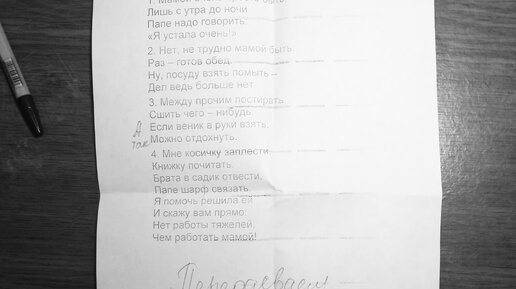 Лишь с утра до ночи
Папе надо говорить:
«Я устала очень!»
2. Нет, не трудно мамой быть:
Раз – готов обед.
Ну, посуду взять помыть –
Дел ведь больше нет
3. Между прочим постирать,
Сшить чего – нибудь,
А так
Если веник в руки взять,
Можно отдохнуть.
4. Мне косичку заплести,
Книжку почитать.
Брата в садик отвести,
Папе шарф связать.
Я помочь решила ей
И скажу вам прямо:
Нет работы тяжелей,
Чем работать мамой!